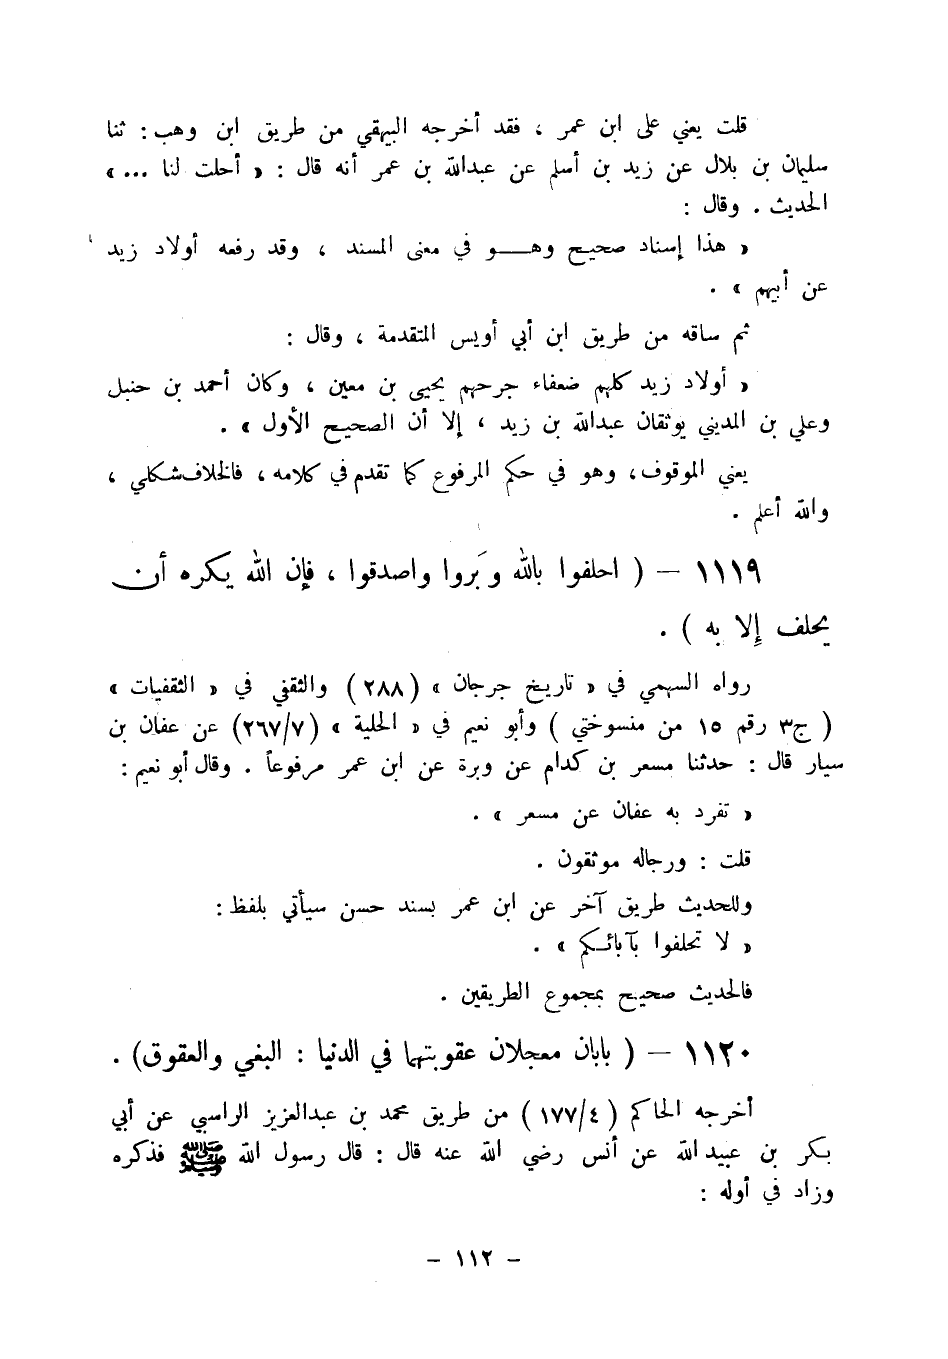 قلت يعني على ابن عمر ، فقد أخرجه البيهقي من طريق ابن وهب : ثنا
سليمان بن بلال عن زيد بن أسلم عن عبدالله بن عمر أنه قال : « أحلت لنا ... »
الحديث . وقال :
« هذا إسناد صحيح وهـــو في معنى المسند ، وقد رفعه أولاد زيد
عن أبيهم » .
ثم ساقه من طريق ابن أبي أويس المتقدمة ، وقال :
« أولاد زيد كلهم ضعفاء جرحهم يحيى بن معين ، وكان أحمد بن حنبل
وعلي بن المديني يوثقان عبدالله بن زيد ، إلا أن الصحيح الأول » .
يعني الموقوف ، وهو في حكم المرفوع كما تقدم في كلامه ، فالخلاف شكلي ،
والله أعلم .
١١١٩ – ( احلفوا بالله وبَروا واصدقوا ، فإن الله يكره أن
يحلف إلا به ) .
رواه السهمي في « تاريخ جرجان » ( ٢٨٨ ) والثقفي في « الثقفيات »
( ج٣ رقم ١٥ من منسوختي ) وأبو نعيم في « الحلية » ( ٢٦٧/٧ ) عن عفان بن
سيار قال : حدثنا مسعر بن كدام عن وبرة عن ابن عمر مرفوعاً . وقال أبو نعيم :
« تفرد به عفان عن مسعر » .
قلت : ورجاله موثقون .
وللحديث طريق آخر عن ابن عمر بسند حسن سيأتي بلفظ :
« لا تحلفوا بآبائـكم » .
فالحديث صحيح بمجموع الطريقين .
١١٢٠ – ( بابان معجلان عقوبتها في الدنيا : البغي والعقوق ) .
أخرجه الحاكم ( ١٧٧/٤ ) من طريق محمد بن عبدالعزيز الراسبي عن أبي
بكر بن عبيد الله عن أنس رضي الله عنه قال : قال رسول الله ﷺ فذكره
وزاد في أوله :
– ١١٢ –